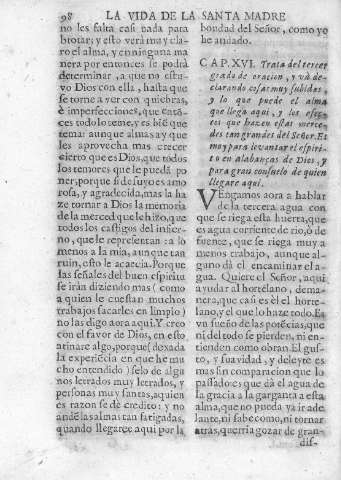 98 LA VIDA DE LA SANTA MADRE
no les falta casi nada para
brotar; y esto verà muy cla-
ro el alma, y en ninguna ma
nera por entonces se podrà
determinar, a que no estu-
vo Dios con ella, hasta que
se torna a ver con quiebras,
è imperfecciones, que entõ-
ces todo lo teme, y es biẽ que
tema: aunque almas ay que
les aprovecha mas creer
cierto que es Dios, que todos
los temores que le pueda po
ner, porque si de suyo es amo
rosa, y agradecida, mas la ha
ze tornar a Dios la memoria
de la merced que le hizo, que
todos los castigos del infier-
no, que le representan: a lo
menos a la mia, aunque tan
ruin, esto le acaecia. Porque
las señales del buen espiritu
se iràn diziendo mas (como
a quien le cuestan muchos
trabajos sacarles en limpio)
no las digo aora aqui. Y creo
con el favor de Dios, en esto
atinarè algo, porque (dexada
la experiẽcia en que he mu
cho entendido) selo de algu
nos letrados muy letrados, y
personas muy santas, a quien
es razon se dè credito: y no
andẽ las almas tan fatigadas,
quando llegarẽ aqui por la
bondad del Señor, como yo
he andado.
CAP. XVI. Trata del tercer
grado de oracion, y và de-
clarando cosas muy subidas,
y lo que puede el alma
que llega aqui, y los efec-
tos que hazen estas merce-
des tan grandes del Señor. Es
muy para levantar el espiri-
tu en alabanças de Dios, y
para gran consuelo de quien
llegare aqui.
VEngamos aora a hablar
de la tercera agua con
que se riega esta huerta, que
es agua corriente de rio, ò de
fuente, que se riega muy a
menos trabajo, aunque al-
guno dà el encaminar el a-
gua. Quiere el Señor, aqui
ayudar al hortelano, de ma-
nera, que casi es èl el horte-
lano, y el que lo haze todo. Es
vn sueño de las potẽcias, que
ni del todo se pierden, ni en-
tienden como obran. El gus-
to, y suavidad, y deleyte es
mas sin comparacion que lo
passado: es que dà el agua de
la gracia a la garganta a esta
alma, que no pueda ya ir ade
lante, ni sabe como, ni tornar
atras, querria gozar de gran-
dis-